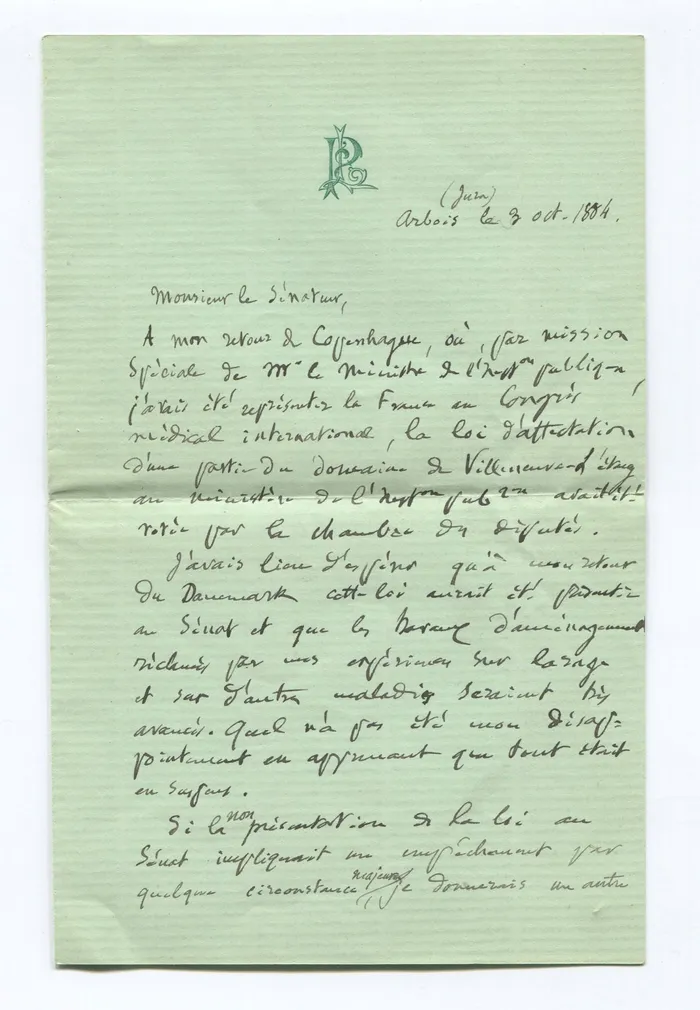 (Jura)
Arbois le 3 oct. 1884.
Monsieur le Sénateur,
A mon retour de Copenhague, où, par mission
spéciale de Mr le Ministre de l'Inston publique,
j'avais été représenter la France au Congrès
médical international, la loi d'affectation
d'une partie du domaine de Villeneuve-l'étang
au ministère de l'Inston pubque avait été
votée par la chambre des députés.
J'avais lieu d'espérer qu'à mon retour
du Danemark cette loi aurait été présentée
au Sénat et que les travaux d'aménagement
réclamés par mes expériences sur la rage
et sur d'autres maladies seraient très
avancés. Quel n'a pas été mon désap-
pointement en apprenant que tout était
en suspens.
Si la non présentation de la loi au
Sénat impliquait un empêchement par
quelque circonstance majeure je donnerais un autre